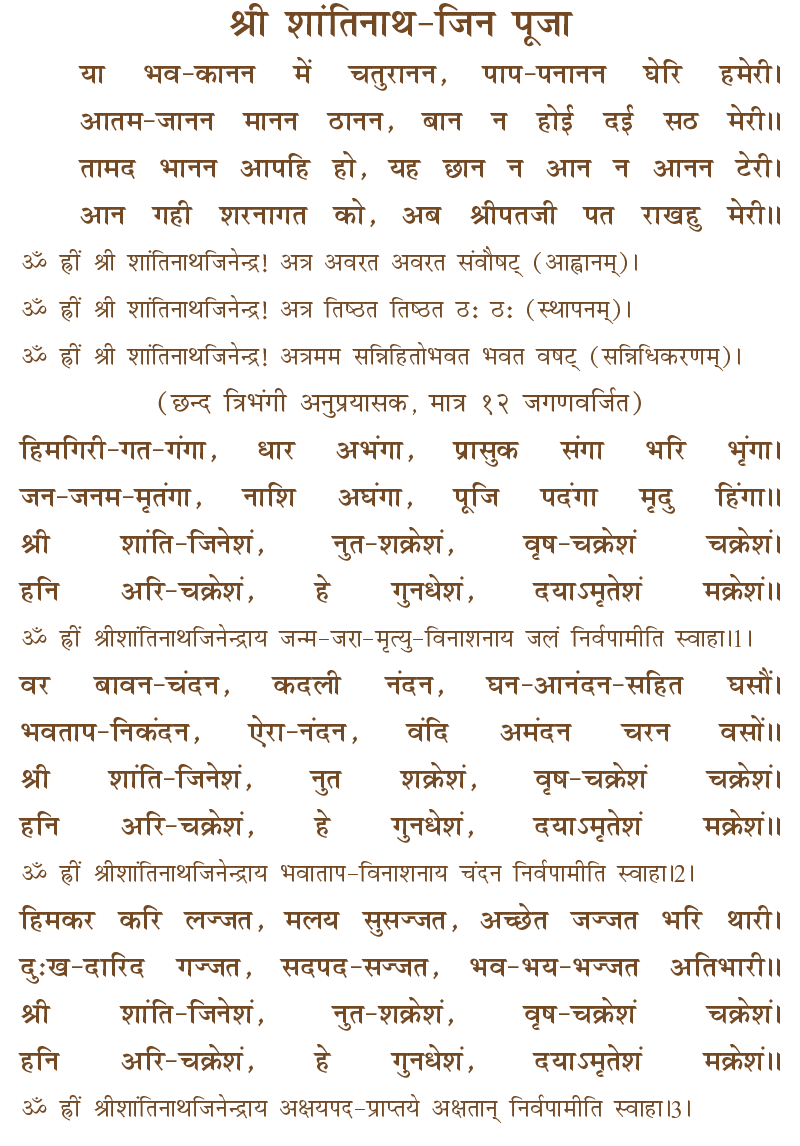 श्री शांतिनाथ-जिन पूजा
या भव-कानन में चतुरानन, पाप-पनानन घेरि हमेरी।
आतम-जानन मानन ठानन, बान न होई दई सठ मेरी॥
तामद भानन आपहि हो, यह छान न आन न आनन टेरी।
आन गही शरनागत को, अब श्रीपतजी पत राखहु मेरी॥
ॐ ह्रीं श्री शांतिनाथजिनेन्द्र! अत्र अवरत अवरत संवौषट् (आह्वानम्)।
ॐ ह्रीं श्री शांतिनाथजिनेन्द्र! अत्र तिष्ठत तिष्ठत ठ: ठ: (स्थापनम्)।
ॐ ह्रीं श्री शांतिनाथजिनेन्द्र! अत्रमम सन्निहितोभवत भवत वषट् (सन्निधिकरणम्)।
(छन्द त्रिभंगी अनुप्रयासक, मात्र १२ जगणवर्जित)
हिमगिरी-गत-गंगा, धार अभंगा, प्रासुक संगा भरि भृंगा।
जन-जनम-मृतंगा, नाशि अघंगा, पूजि पदंगा मृदु हिंगा॥
श्री शांति-जिनेशं, नुत-शक्रेशं, वृष-चक्रेशं चक्रेशं।
हनि अरि-चक्रेशं, हे गुनधेशं, दयाऽमृतेशं मक्रेशं॥
ॐ ह्रीं श्रीशांतिनाथजिनेन्द्राय जन्म-जरा-मृत्यु-विनाशनाय जलं निर्वपामीति स्वाहा।1।
वर बावन-चंदन, कदली नंदन, घन-आनंदन-सहित घसौं।
भवताप-निकंदन, ऐरा-नंदन, वंदि अमंदन चरन वसों॥
श्री शांति-जिनेशं, नुत शक्रेशं, वृष-चक्रेशं चक्रेशं।
हनि अरि-चक्रेशं, हे गुनधेशं, दयाऽमृतेशं मक्रेशं॥
ॐ ह्रीं श्रीशांतिनाथजिनेन्द्राय भवाताप-विनाशनाय चंदन निर्वपामीति स्वाहा।2।
हिमकर करि लज्जत, मलय सुसज्जत, अच्छेत जज्जत भरि थारी।
दुःख-दारिद गज्जत, सदपद-सज्जत, भव-भय-भज्जत अतिभारी॥
श्री शांति-जिनेशं, नुत-शक्रेशं, वृष-चक्रेशं चक्रेशं।
हनि अरि-चक्रेशं, हे गुनधेशं, दयाऽमृतेशं मक्रेशं॥
ॐ ह्रीं श्रीशांतिनाथजिनेन्द्राय अक्षयपद-प्राप्तये अक्षतान् निर्वपामीति स्वाहा।3।